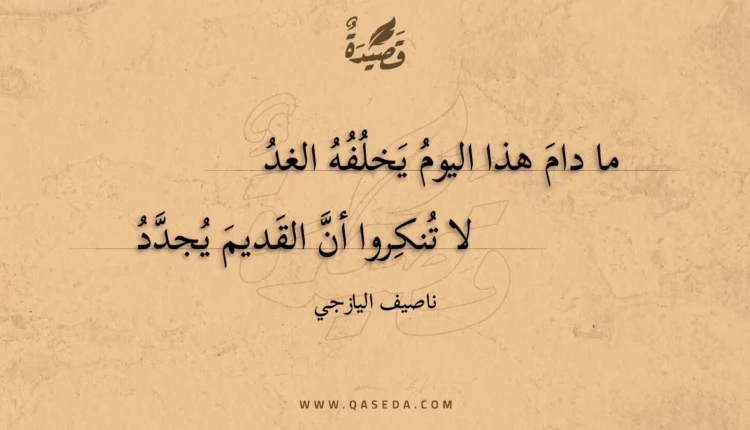 قَصِيْدَةٌ
ما دامَ هذا اليومُ يَخلُفُهُ الغدُ
لا تُنكِروا أنَّ القَديمَ يُجدَّدُ
ناصيف اليازجي
WWW.QASEDA.COM